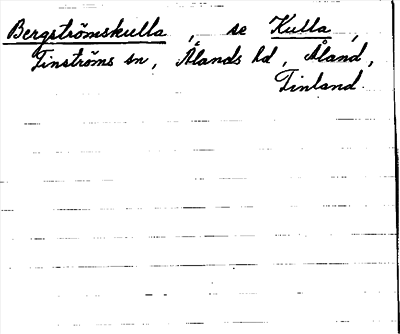 Bergströmskulla, se Kulla,
Finströms sn, Ålands hd, Åland,
Finland.